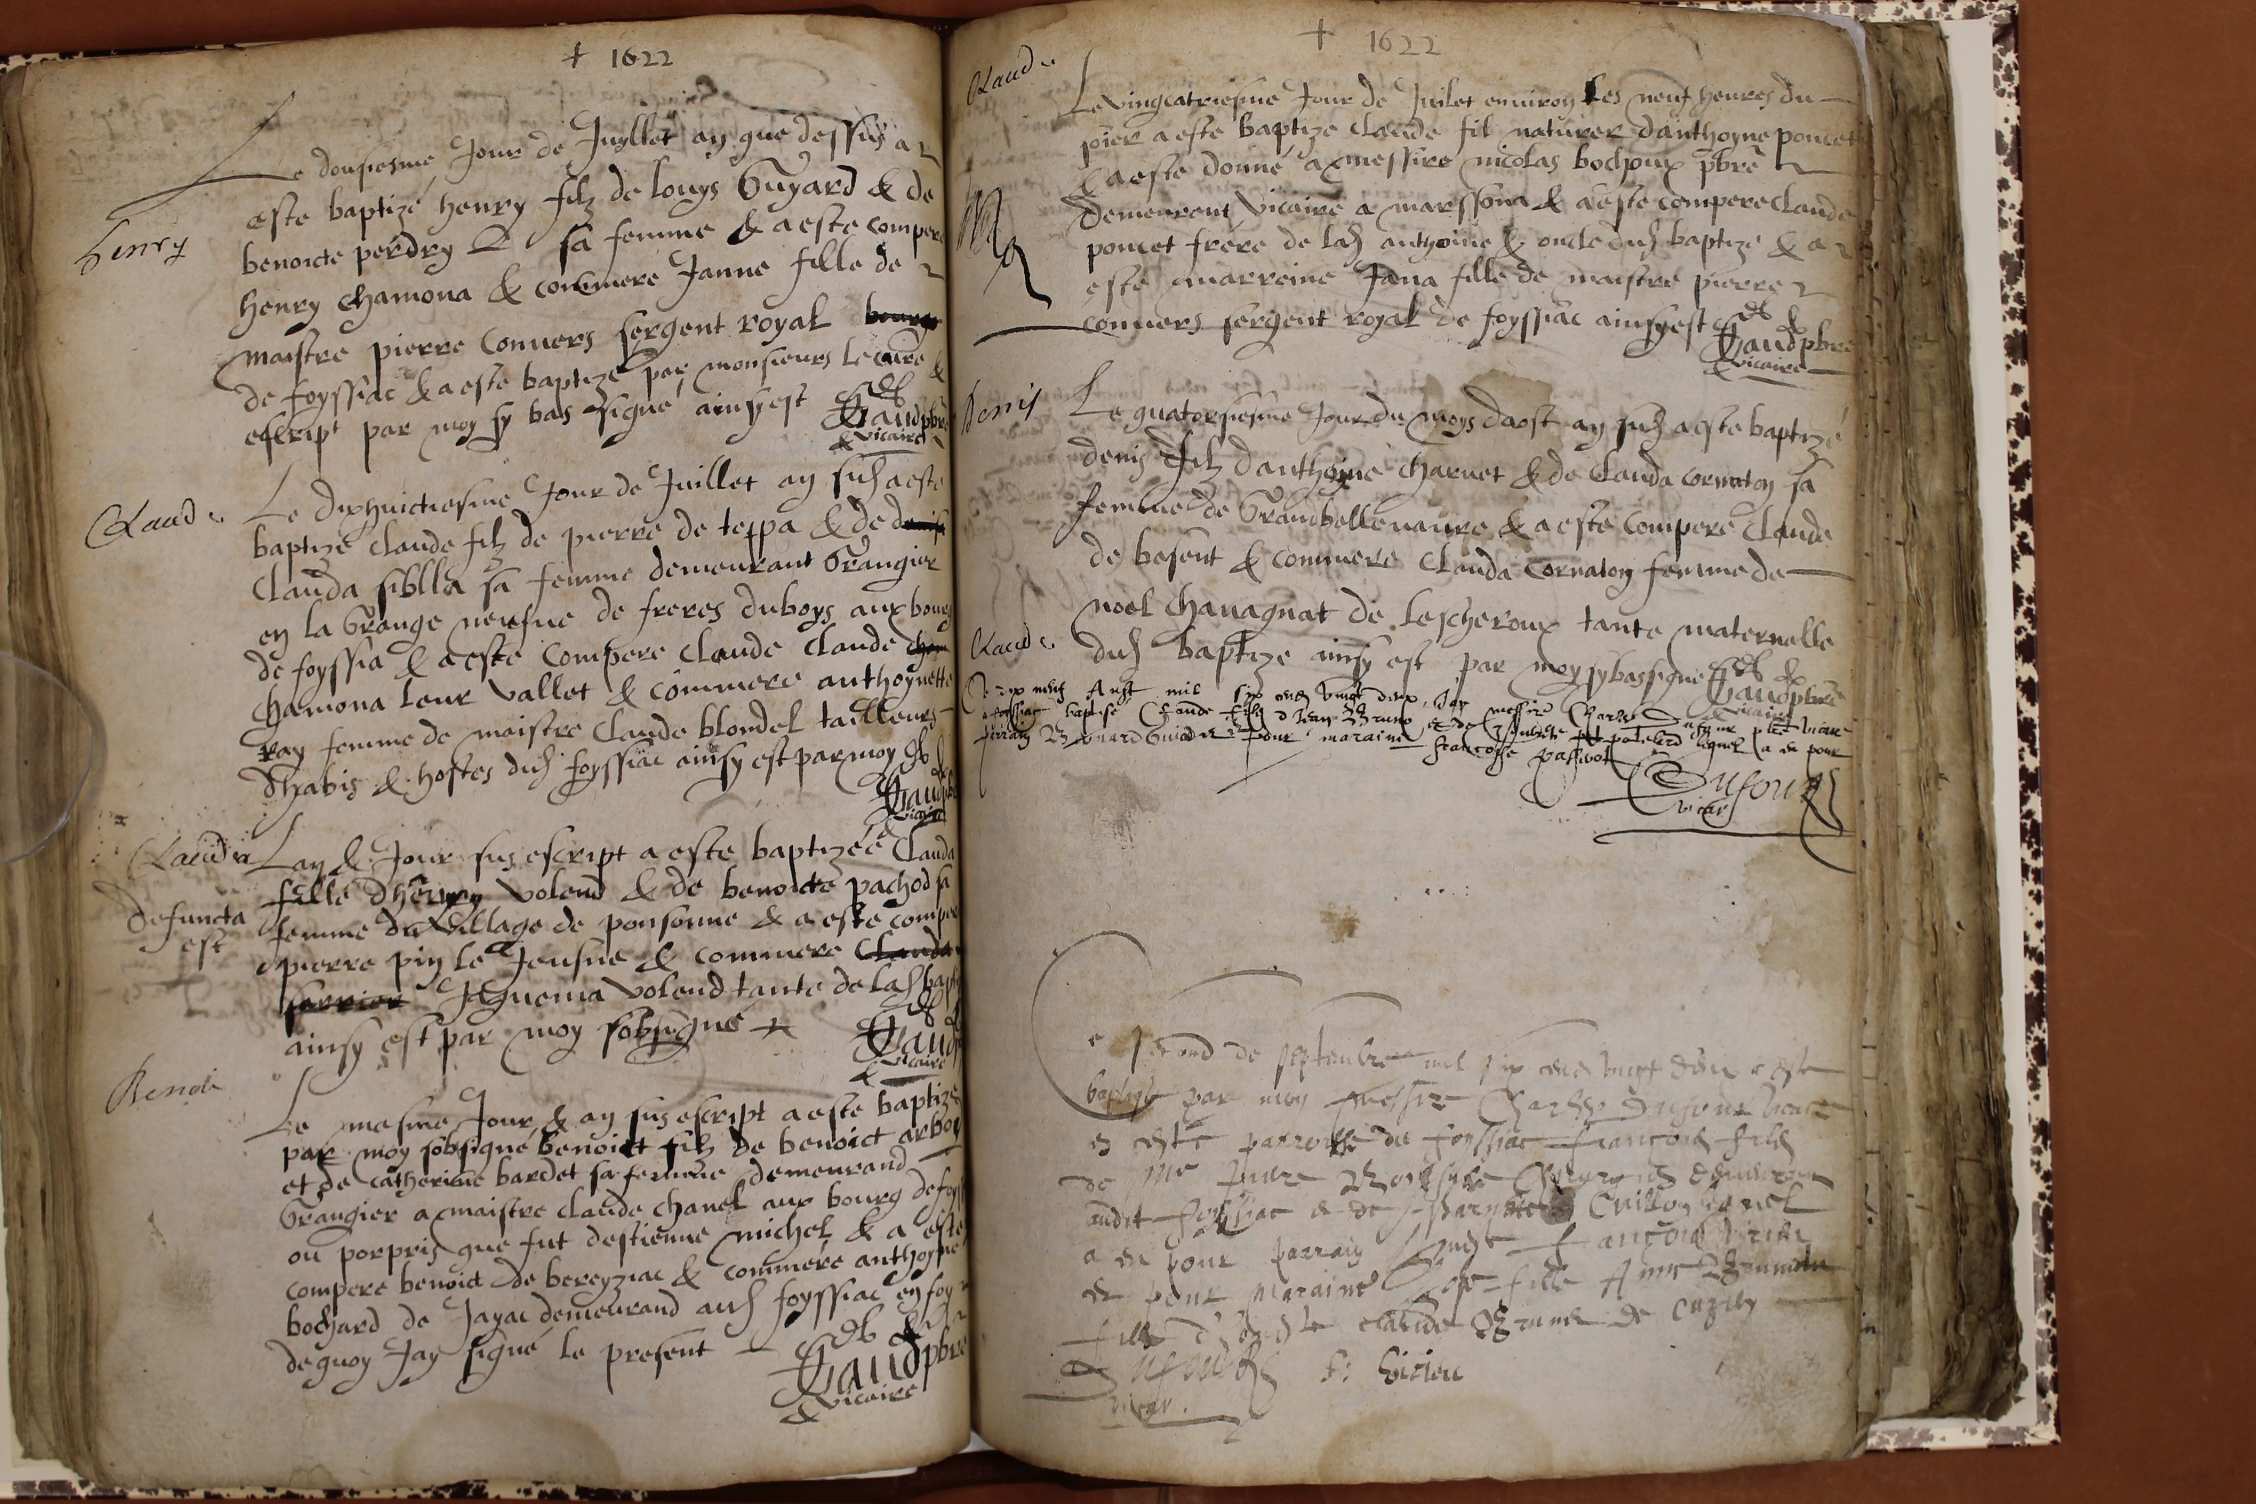 + 1622
Le dousiesme Jour de Juyllet an que dessus a
este baptizé henry filz de louys Guyard & de
henry
benoicte perdry sa femme & a este compere
henry chamona & commere Janne fille de
maistre pierre conuers sergent royal
de foyssiac & a este baptizé par monsieurs le curé &
escript par moy sy bas signé ainsy est
Gaud pbre
& vicaire
Claude
Le dixhuictiesme Jour de Juillet an susd a este
baptizé claude filz de pierre de teppa & de
clauda siblla sa femme demeurant Grangier
en la Grange neufue de freres duboys aux bourg
de foyssia & a este compere claude claude
chamona leur vallet & commere anthoynette
ray femme de maistre claude blondel tailleurs
dhabis & hostes dud foyssiac ainsy est par moy
Gaud pbre
& vicaire
Clauda
Lan & Jour sus escript a este baptizéé clauda
fille dhenry volend & de benoicte pachod sa
defuncta
est
femme du village de ponsonne & a este compere
pierre pin le Jeusne & commere clauda
Jaquema volend tante de lad bapt
ainsy est par moy sobsigné
Gaud
& vicaire
Benoi
Le mesme Jour & an sus escript a este baptizé
par moy sobsigné benoict filz de benoict arboy
et de catherine bardet sa femme demeurand
Grangier a maistre claude chanel aux bourg de foyss
ou porpris que fut destienne michel & a este
compere benoict de bereyziac & commere anthoyne
bochard de Jayac demeurand aud foyssiac en foy
dequoy Jay signé le present
Gaud pbre
& vicaire
+ 1622
Claude
Le vingcatriesme Jour de Juilet enuiron les neuf heures du
pier a este baptize claude fil naturer danthoyne poncet
& a este donné a messire nicolas bochoux pbre
demeurent vicaire a marssona & a este compere claude
poncet frere de lad anthoine & oncle dud baptizé & a
este marreine Jana fille de maistre pierre
conuers sergent royal de foyssiac ainsy est
Gaud pbre
& vicaire
Denis
Le quatorsiesme Jour du moys daost an susd a este baptizé
denis filz danthoine charuet & de clauda cornaton sa
femme de Grandbellenaure & a este compere claude
de besent & commere clauda cornaton femme de
noel chauagnat de lescheroux tante maternelle
dud baptize ainsy est par moy sy bas signé
Gaud pbre
& vicaire
Claude
Ce dix neuf Aust mil six cens vingt deux, Jay messire Charles Dufour pbre vicaire
a foyssiac baptise Claude filz d Jean Brune et de lequel a eu pour
parrain Bernard Guiader et pour maraine francoise passerot
Dufour
vicar
Le second de septembre mil six cens vingt deux a este
baptisé par moy messire Charles Dufour vicaire
en ceste parroisse de foyssiac francois filz
de Me
audit foyssiac & de Cuillon lequel
a eu pour parrain francois virieu
et pour maraine fille Anne
fille d claude Brune de cuzey
Dufour F. Virieu
vicar.